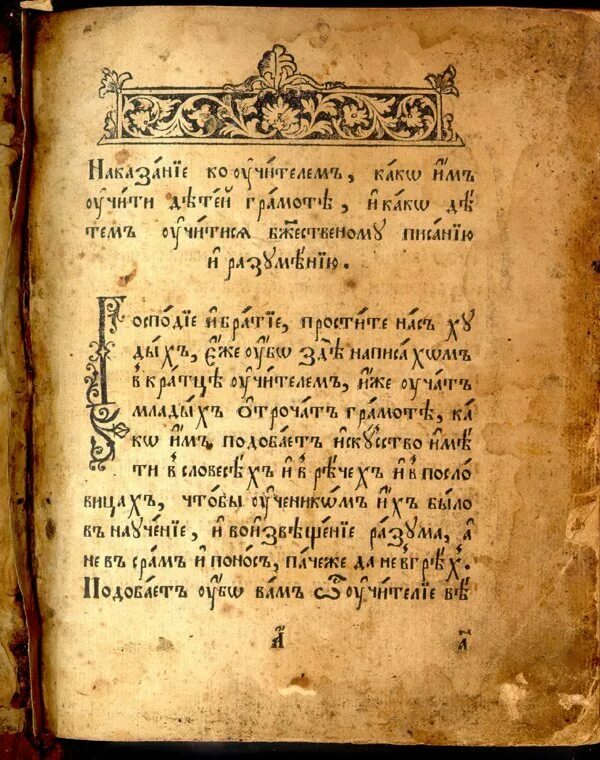 Наказа́нїе ко оучи́телемъ, ка́кѡ и҆̀мъ
оучи́ти дѣте́й гра́мотѣ, и҆ ка́кѡ дѣ́
темъ оучи́тися бж҃е́ственому писа́нїю
и҆ разумѣ́нїю.
Господїе и҆ бра́тїе, прости́те на́съ ху
ды́хъ, є҆́же оу҆́бѡ здѣ̀ написа́хѡмъ
в̾кра́тцѣ оучи́телемъ, и҆̀же оуча́тъ
млады́хъ ѻ҆троча́тъ гра́мотѣ, ка́
кѡ и҆̀мъ, подоба́етъ и҆скꙋ́ство и҆мѣ́
ти в̾ словесѣ́хъ и҆ в̾ рѣ́чехъ и҆ в̾ посло́
вицахъ, что́бы оу҆ченикѡ́мъ и҆́хъ бы́ло
въ науче́нїе, и҆ во и҆звѣще́нїе ра́зума, а҆
не въ сра́мъ и҆ поно́съ, па́чеже да не в̾ грѣ́х̾.
Подоба́етъ оу҆́бѡ ва́мъ ѽ оучи́телїе вѣ́
а҃
а҃